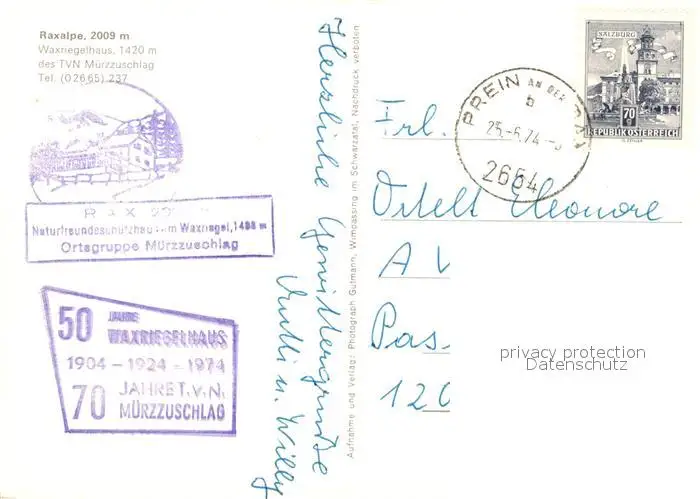 Raxalpe, 2009 m
Waxriegelhaus, 1420 m
des TVN Mürzzuschlag
Tel. (02665) 237
RAX
Naturfreundeschutzhaus am Waxriegel, 1488 m
Ortsgruppe Mürzzuschlag
50 JAHRE
WAXRIEGELHAUS
1904 – 1924 – 1974
70 JAHRE T.V.N.
MÜRZZUSCHLAG
Herzliche Gewittergrüße
Mutti u. Willy
Aufnahme und Verlag: Photograph Gutmann, Wimpassing im Schwarzatal, Nachdruck verboten
PREIN AN DER RAX
b
25.-6.74
2654
SALZBURG
70
g
REPUBLIK ÖSTERREICH
Frl.
Ostelt Eleonore
A V
Pas
120
privacy protection
Datenschutz